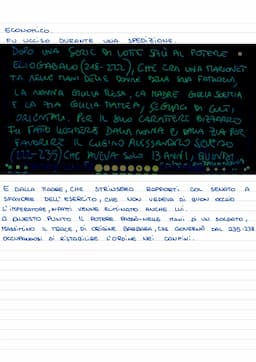 ECONOMICO.
FU UCCISO DURANTE UNA SPEDIZIONE.
DOPO UNA SERIE DI LOTTE SALÌ AL POTERE
ELIOGABALO (218-222), CHE ERA UNA MARIONET
TA NELLE MANI DELLE DONNE DELLA SUA FAMIGLIA,
LA NONNA GIULIA MESA, LA MADRE GIULIA SOEMIA
E LA ZIA GIULIA MAMEA, SEGUACI DI CULTI
ORIENTALI. PER IL SUO CARATTERE BIZZARRO
FU FATTO UCCIDERE DALLA NONNA E DALLA ZIA PER
FAVORIRE IL CUGINO ALESSANDRO SEVERO
(222-235) CHE AVEVA SOLO 13 ANNI, QUINDI
E DALLA MADRE, CHE STRINSERO RAPPORTI COL SENATO A
SFAVORE DELL'ESERCITO, CHE NON VEDEVA DI BUON OCCHIO
L'IMPERATORE, INFATTI VENNE ELIMINATO ANCHE LUI.
A QUESTO PUNTO IL POTERE PASSÒ NELLE MANI DI UN SOLDATO,
MASSIMINO IL TRACE, DI ORIGINE BARBARA, CHE GOVERNÒ DAL 235-238
OCCUPANDOSI DI RISTABILIRE L'ORDINE NEI CONFINI.